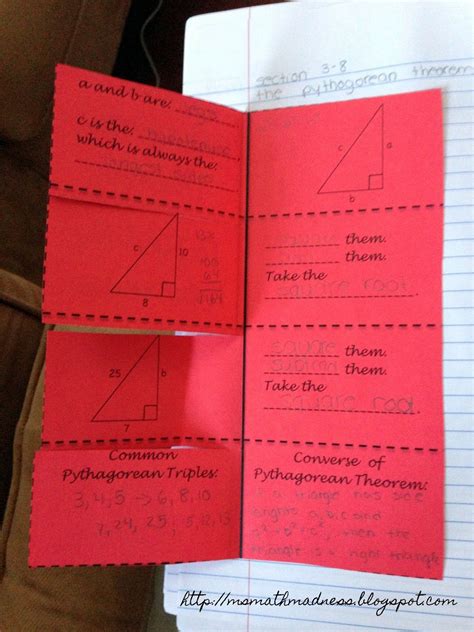 section 3-8
the pythagorean theorem
a and b are: legs
c is the:
which is always the:
longest side
c
a
b
c
10
8
100
64
them.
them.
Take the
square root.
25
b
7
square them.
them.
Take the
square root.
Common
Pythagorean Triples:
3, 4, 5 → 6, 8, 10
7, 24, 25; 5, 12, 13
Converse of
Pythagorean Theorem:
if a triangle has side
lengths a, b, c and
a²+b²=c², then the
triangle is a right triangle
http://msmathmadness.blogspot.com